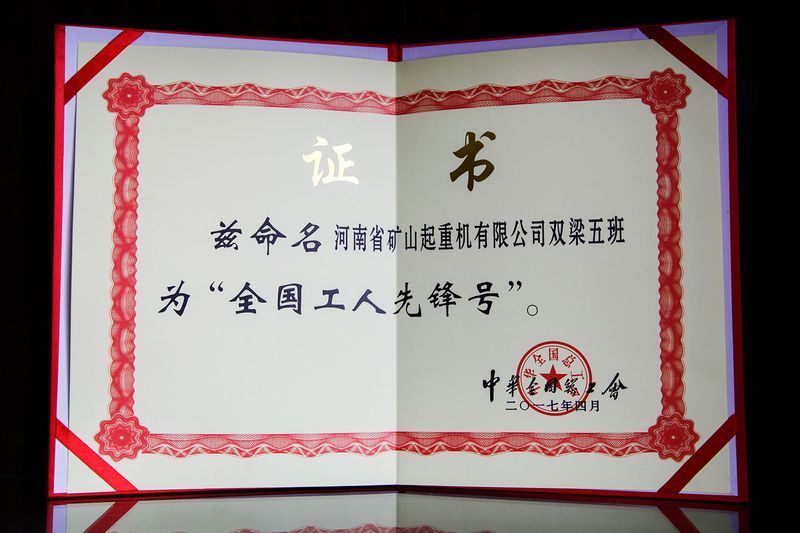 证书
兹命名河南省矿山起重机有限公司双梁五班
为“全国工人先锋号”。
中华全国总工会
二〇一七年四月